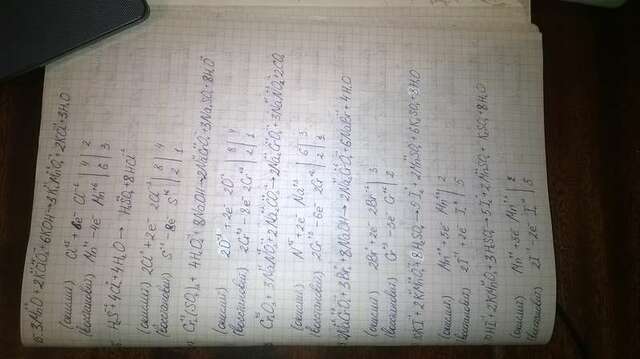 3MnO + 2KClO₃ + 6KOH → 3K₂MnO₄ + 2KCl + 3H₂O
(окислит) Cl⁺⁵ + 6e⁻ Cl⁻ | 4 | 2
(восстановит) Mn⁺² - 4e⁻ Mn⁺⁶ | 6 | 3
H₂S + 4Cl₂ + 4H₂O → H₂SO₄ + 8HCl
(окислит) 2Cl + 2e⁻ 2Cl⁻ | 8 | 4
(восстановит) S⁻² - 8e⁻ S⁺⁶ | 2 | 1
Cr₂(SO₄)₃ + 4H₂O₂ + 8NaOH → 2NaCrO₄ + 3Na₂SO₄ + 8H₂O
(окислит) 2O⁻ + 2e⁻ 2O⁻
(восстановит) 2Cr⁺³ - 8e⁻ 2Cr⁺⁶ | 2 | 1
Cr₂O₃ + 3NaNO₃ + 2Na₂CO₃ → 2Na₂CrO₄ + 3NaNO₂ + 2CO₂
(окислит) N⁺⁵ + 2e⁻ | 6 | 3
(восстановит) 2Cr⁺³ - 6e⁻ 2Cr⁺⁶ | 2
2NaCrO₂ + 3Br₂ + 8NaOH → 2Na₂CrO₄ + 6NaBr + 4H₂O
(окислит) 2Br + 2e⁻ 2Br⁻ | 3
(восстановит) Cr⁺³ - 3e⁻ Cr⁺⁶ | 2
KI + 2KMnO₄ + 8H₂SO₄ → 5I₂ + 2MnSO₄ + 6K₂SO₄ + 8H₂O
(окислит) Mn + 5e⁻ Mn⁺² | 2
(восстановит) 2I⁻ + 2e⁻ I₂ | 5
HI + 2KMnO₄ + 3H₂SO₄ → 5I₂ + 2MnSO₄ + K₂SO₄ + 8H₂O
(окислит) Mn + 5e⁻ Mn⁺² | 2
(восстановит) 2I⁻ - 2e⁻ I₂ | 5